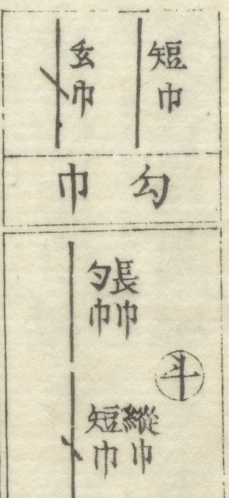 短巾
玄巾
勾巾
斗
長巾
勾巾
縱巾
短巾